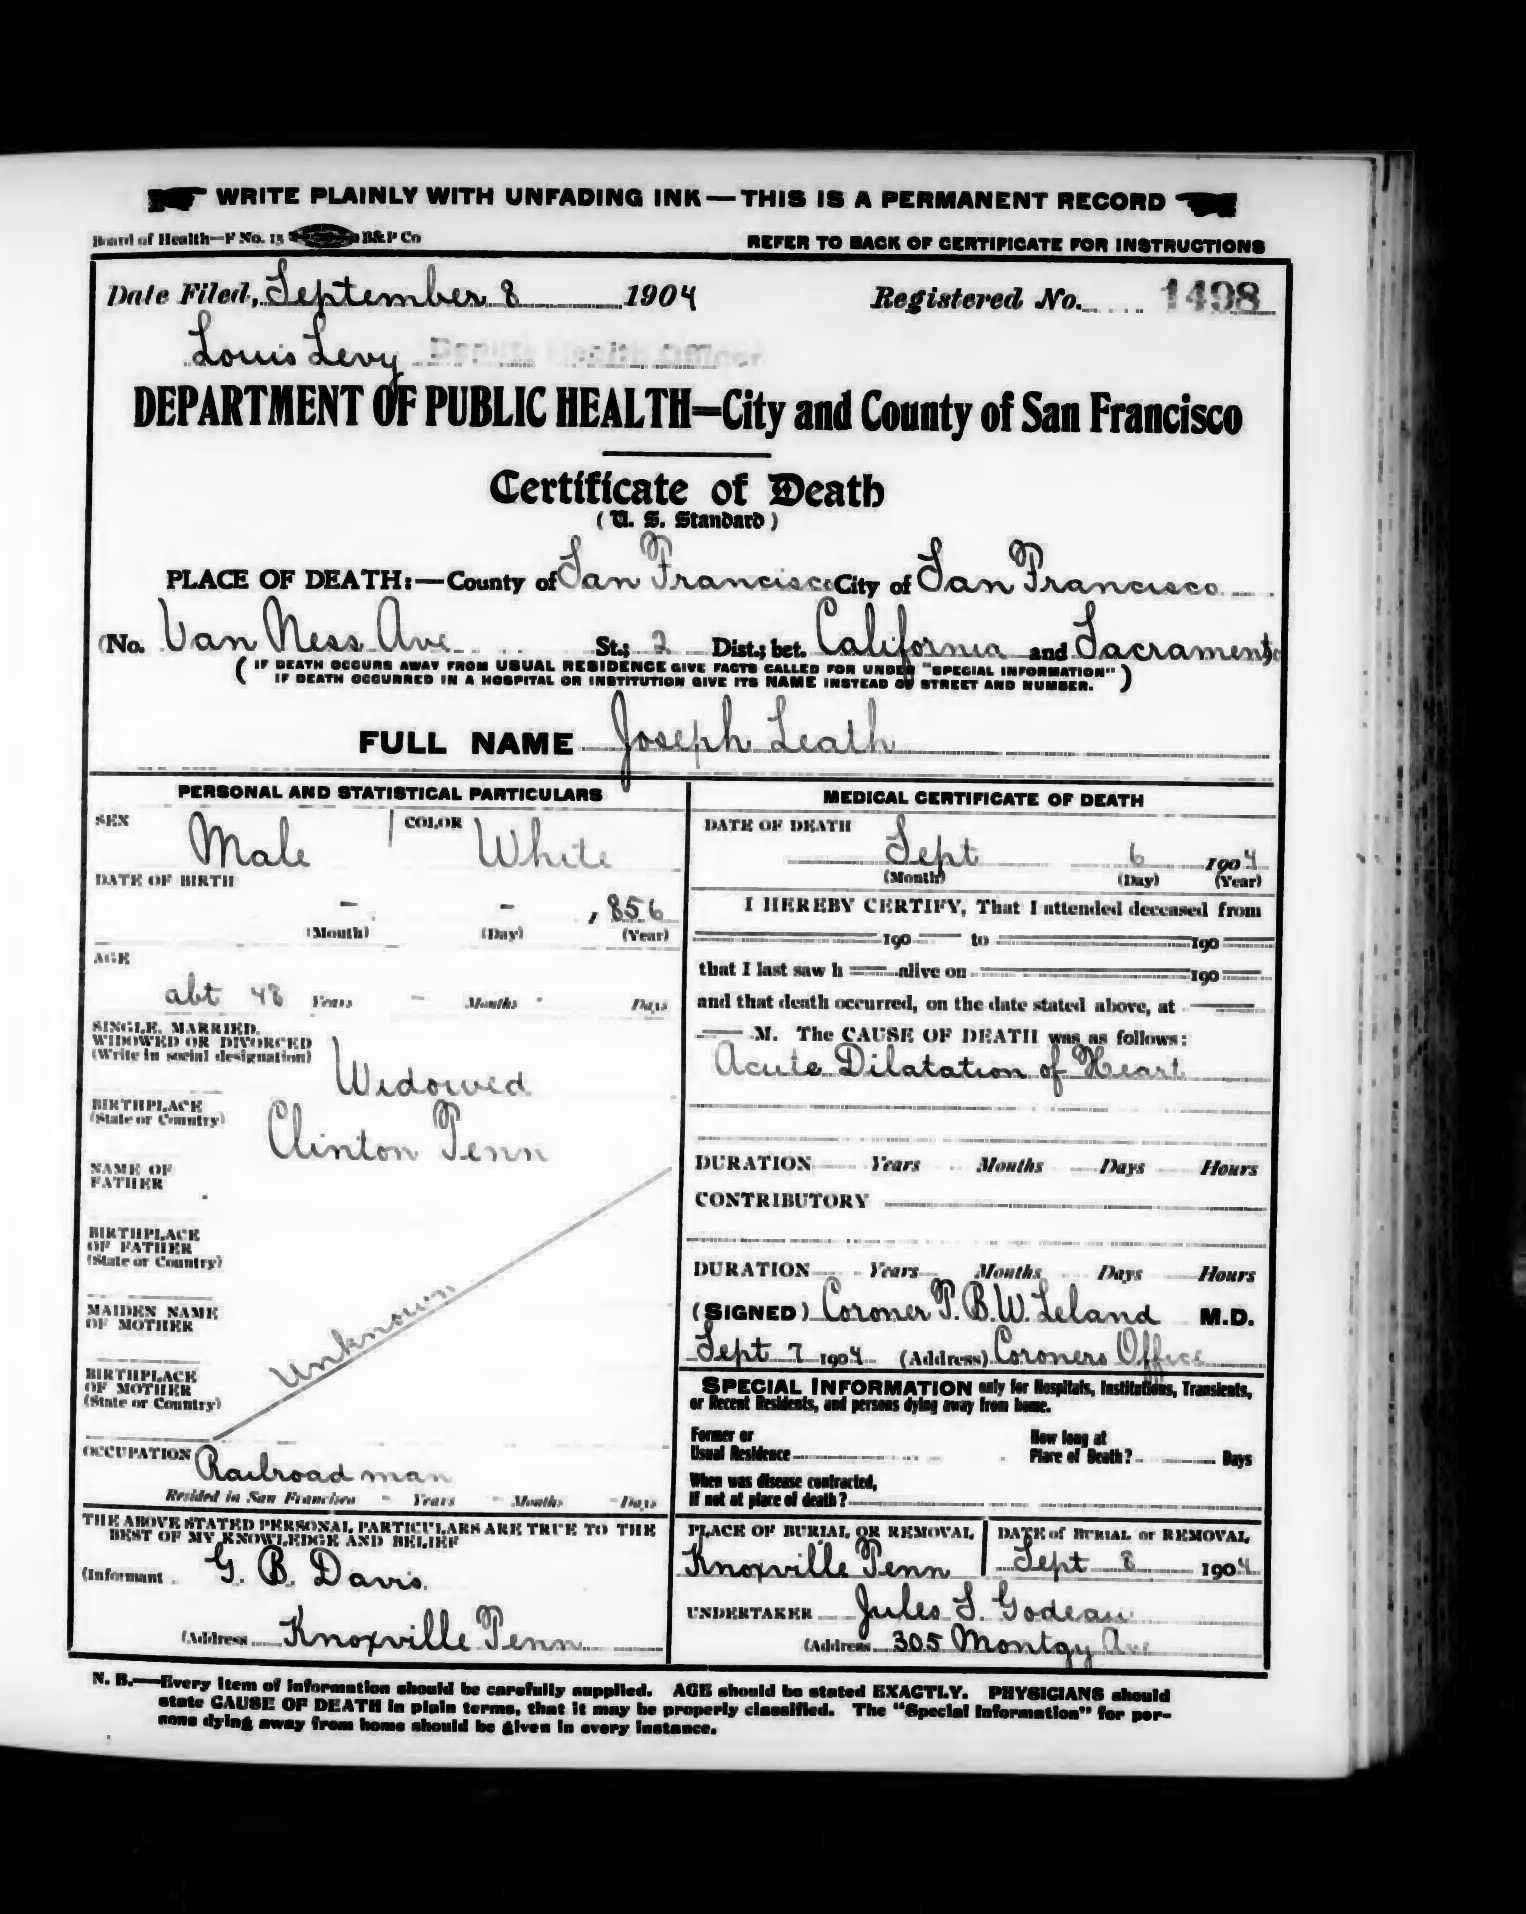 WRITE PLAINLY WITH UNFADING INK — THIS IS A PERMANENT RECORD
Board of Health—F No. 15 B&P Co
REFER TO BACK OF CERTIFICATE FOR INSTRUCTIONS
Date Filed, September 8 1904 Registered No. 1498
Louis Levy Deputy Health Officer
DEPARTMENT OF PUBLIC HEALTH=City and County of San Francisco
Certificate of Death
( U. S. Standard )
PLACE OF DEATH:—County of San Francisco City of San Francisco
(No. Van Ness Ave St.; 2 Dist.; bet. California and Sacramento
( IF DEATH OCCURS AWAY FROM USUAL RESIDENCE GIVE FACTS CALLED FOR UNDER "SPECIAL INFORMATION"
IF DEATH OCCURRED IN A HOSPITAL OR INSTITUTION GIVE ITS NAME INSTEAD OF STREET AND NUMBER. )
FULL NAME Joseph Leath
PERSONAL AND STATISTICAL PARTICULARS
SEX Male COLOR White
DATE OF BIRTH
- - , 856
(Month) (Day) (Year)
AGE
abt 48 Years - Months - Days
SINGLE, MARRIED,
WIDOWED OR DIVORCED
(Write in social designation)
Widowed
BIRTHPLACE
(State or Country)
Clinton Penn
NAME OF
FATHER
BIRTHPLACE
OF FATHER
(State or Country)
MAIDEN NAME
OF MOTHER
Unknown
BIRTHPLACE
OF MOTHER
(State or Country)
OCCUPATION Railroad man
Resided in San Francisco - Years - Months - Days
THE ABOVE STATED PERSONAL PARTICULARS ARE TRUE TO THE
BEST OF MY KNOWLEDGE AND BELIEF
(Informant G. B. Davis
(Address Knoxville Penn
MEDICAL CERTIFICATE OF DEATH
DATE OF DEATH
Sept 6 1904
(Month) (Day) (Year)
I HEREBY CERTIFY, That I attended deceased from
190 to 190
that I last saw h alive on 190
and that death occurred, on the date stated above, at
M. The CAUSE OF DEATH was as follows:
Acute Dilatation of Heart
DURATION Years Months Days Hours
CONTRIBUTORY
DURATION Years Months Days Hours
(SIGNED) Coroner T. B. W. Leland M.D.
Sept 7 1904 (Address) Coroners Office
SPECIAL INFORMATION only for Hospitals, Institutions, Transients,
or Recent Residents, and persons dying away from home.
Former or
Usual Residence
How long at
Place of Death? Days
When was disease contracted,
If not at place of death?
PLACE OF BURIAL OR REMOVAL
Knoxville Penn
DATE of BURIAL or REMOVAL
Sept 8 1904
UNDERTAKER Jules S. Godeau
(Address 305 Montgy Ave
N. B.—Every item of information should be carefully supplied. AGE should be stated EXACTLY. PHYSICIANS should
state CAUSE OF DEATH in plain terms, that it may be properly classified. The "Special Information" for per-
sons dying away from home should be given in every instance.